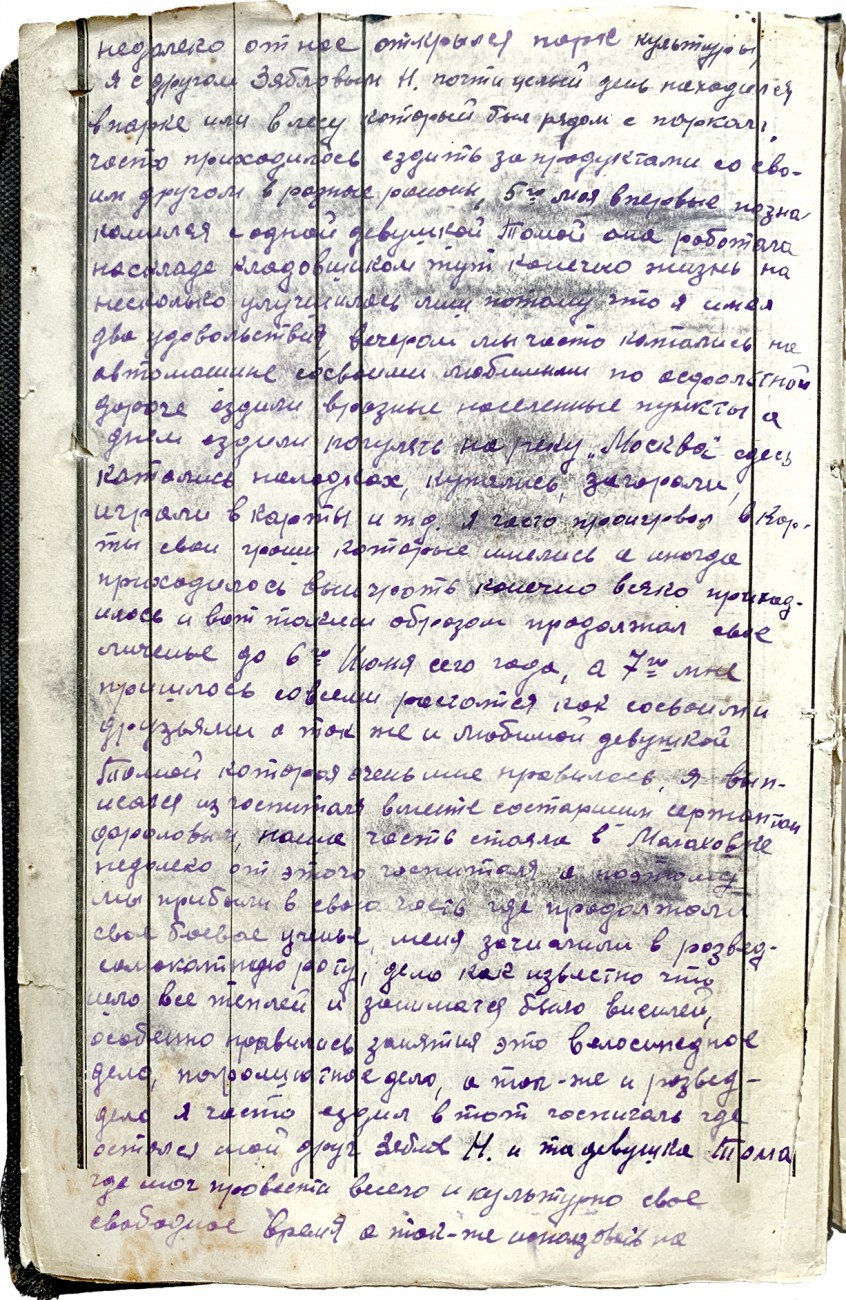 недалеко от нас открылся парк культуры,
я с другом Зябловым Н. почти целый день находился
в парке или в лесу который был рядом с парком,
часто приходилось ездить за продуктами со сво-
им другом в разные районы, 5го мая впервые позна
комился с одной девушкой Томой она работала
на складе кладовщиком тут конечно жизнь на
несколько улучшилась лиш потому что я имел
два удовольствия, вечером мы часто катались на
автомашине со своими любимыми по асфальтной
дороге ездили в разные населенные пункты а
днем ездили погулять на реку „Москва" здесь
катались на лодках, купались, загорали,
играли в карты и т.д. я часто проигровал в кар-
ты свои гроши которые имелись а иногда
приходилось выигроть конечно всяко приход-
илось и вот таким образом продолжал свое
личенье до 6го Июня сего года, а 7го мне
пришлось совсеми растатся как со своими
друзьями а так же и любимой девушкой
Томой которая очень мне нравилось, я вып-
исался из госпиталя вместе со старшим сержантом
фроловым, наша часть стояла в Малаховке
недалеко от этого госпиталя а поэтому
мы прибыли в свою часть где продолжали
свое боевое ученье, меня зачислили в развед-
самокатную роту, дело как известно что
шло все теплей и заниматся было висилей,
особенно нравились занятия это велосипедное
дело, а так-же и развед-
дело я часто ездил в тот госпиталь где
остался мой друг Зяблов Н. и та девушка Тома,
где мог провести весело и культурно свое
свободное время а так-же на